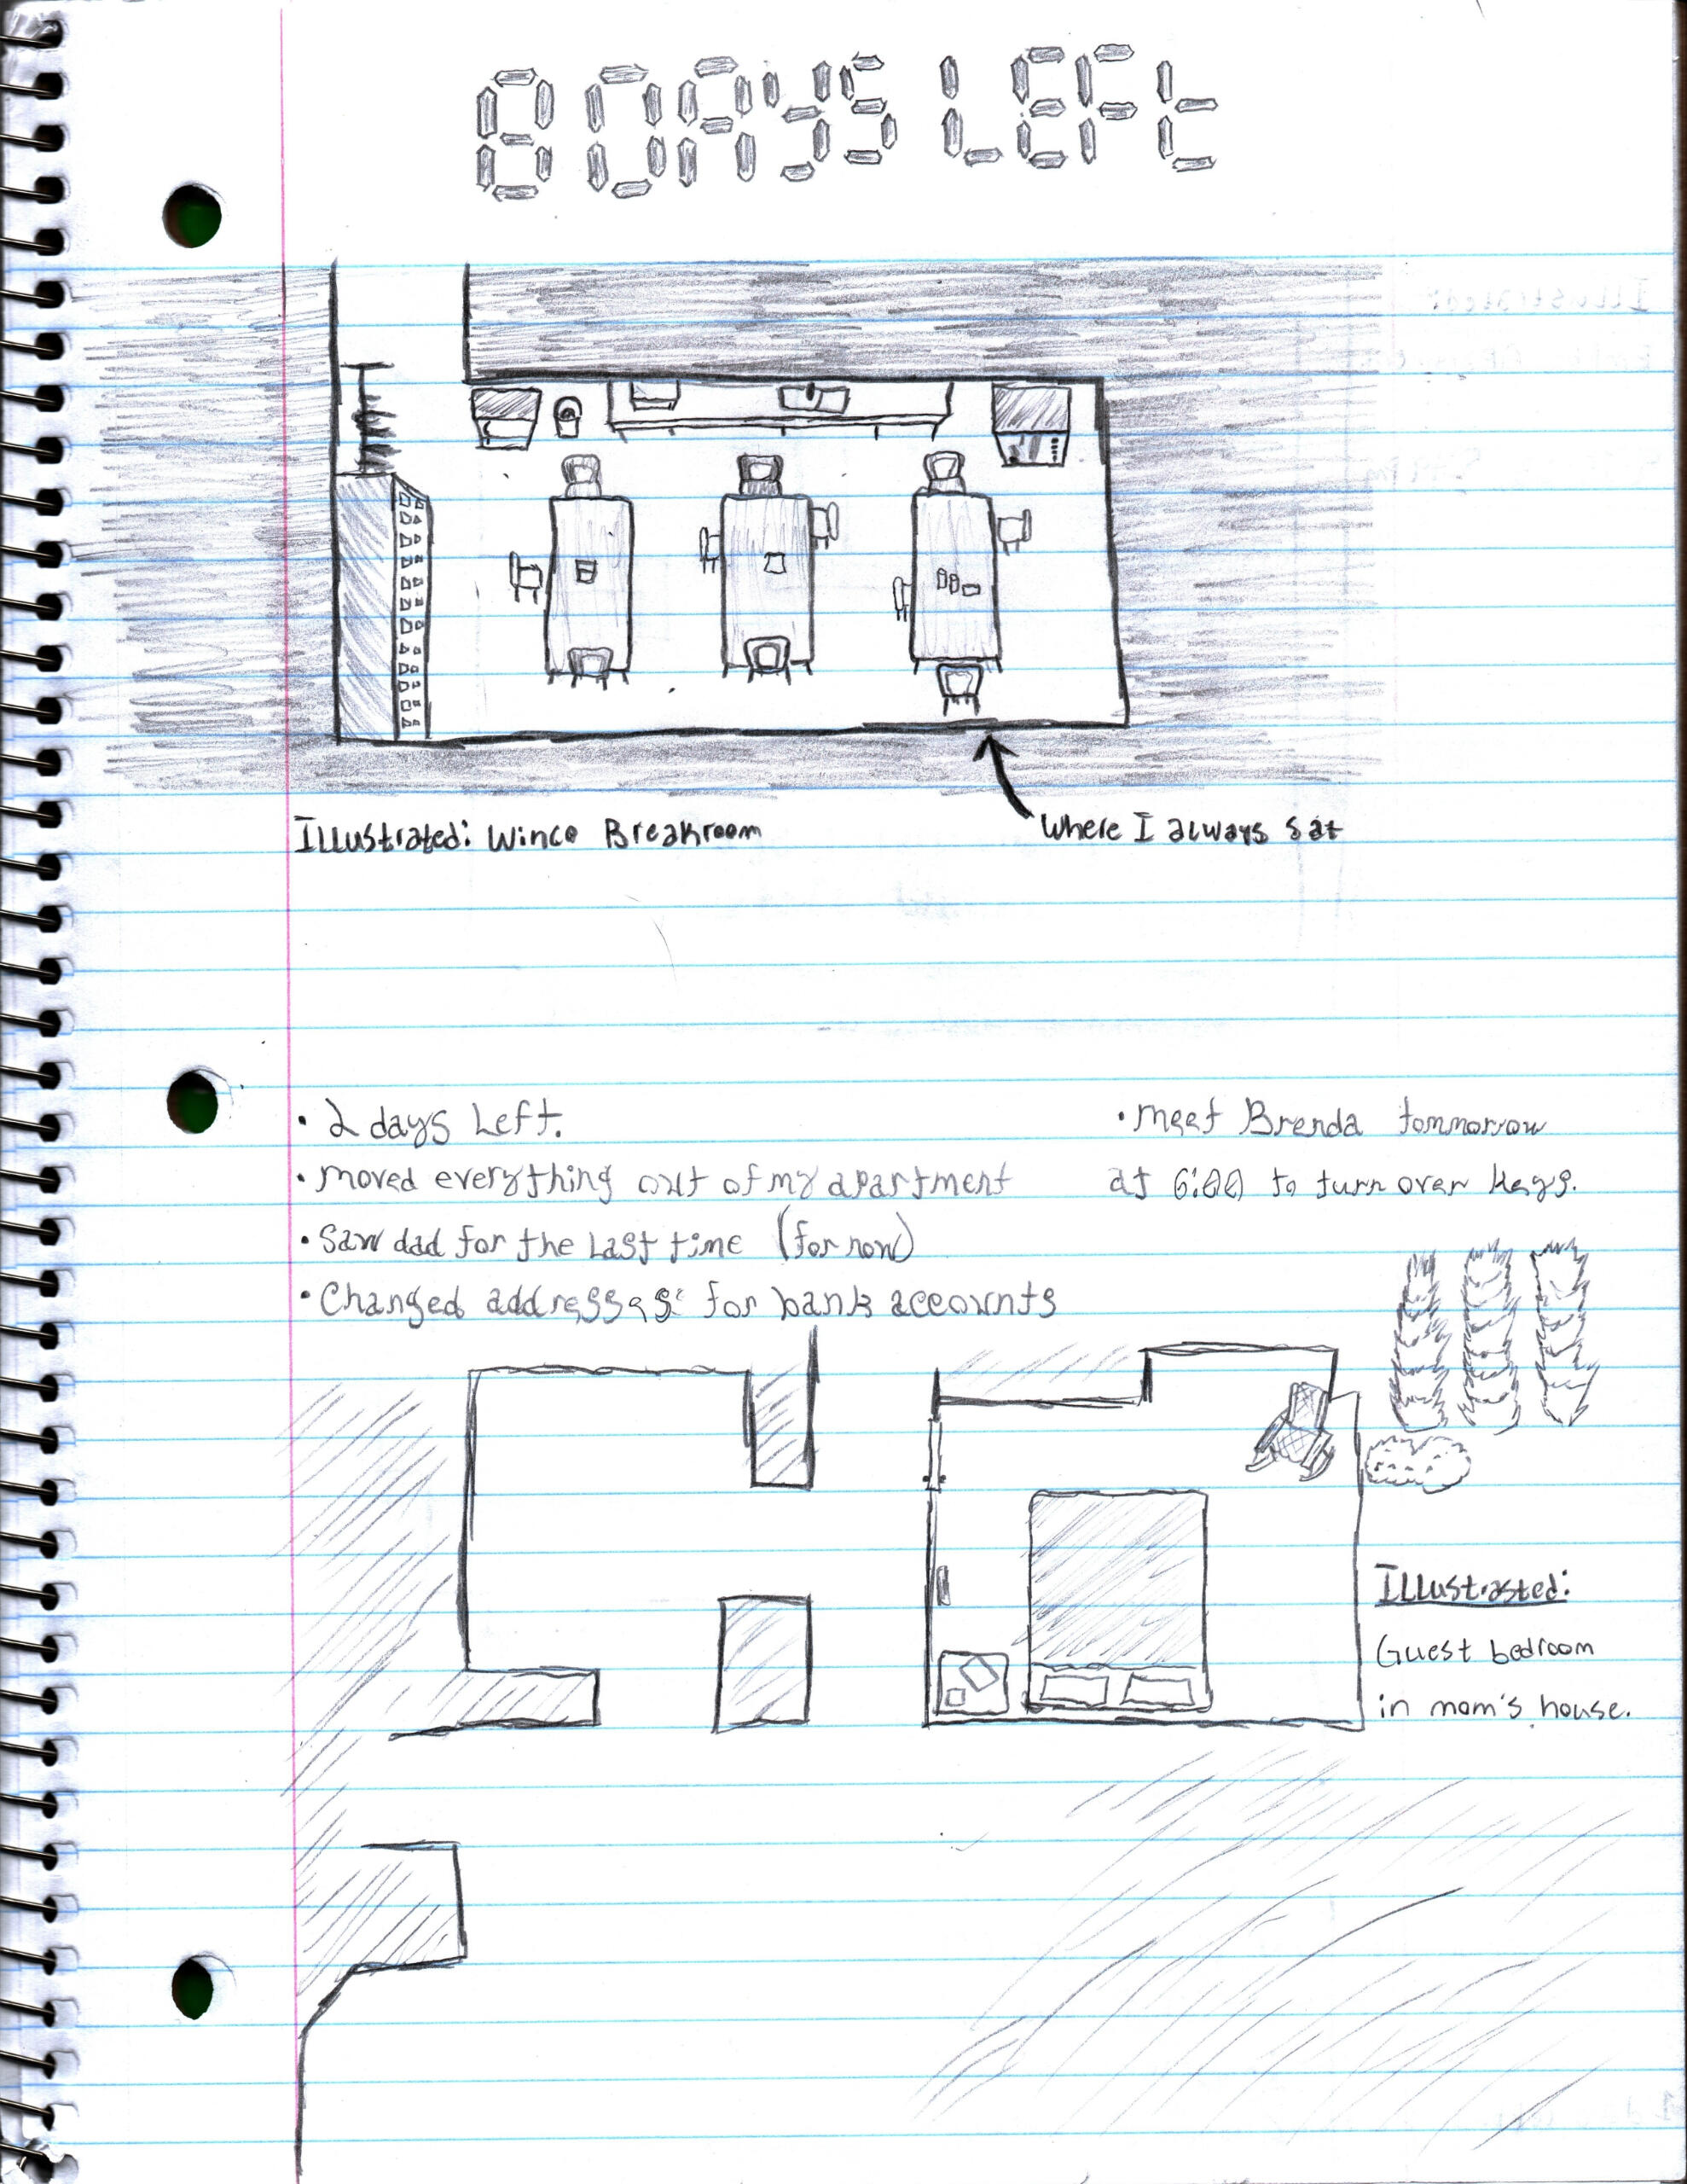 8 DAYS LEFt
Illustrated: Winco Breakroom
Where I always sat
• 2 days Left.
• moved everything out of my apartment
• Saw dad for the Last time (for now)
• Changed addresses for bank accounts
• meet Brenda tommorrow
at 6:00 to turn over keys.
Illustrated:
Guest bedroom
in mom's house.